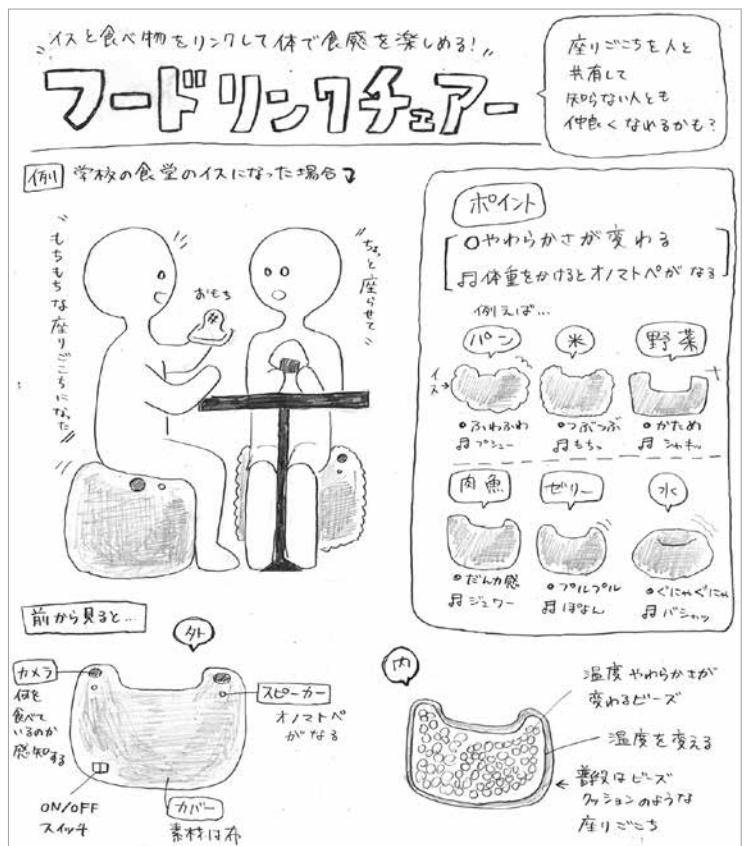 イスと食べ物をリンクして体で食感を楽しめる!
フードリンクチェアー
座りごこちを人と
共有して
知らない人とも
仲良くなれるかも?
例 学校の食堂のイスになった場合
もちもちな座りごこちになった
おもち
ちょっと座らせて
ポイント
やわらかさが変わる
体重をかけるとオノマトペがなる
例えば…
パン
米
野菜
イス→
・ふわふわ
・つぶつぶ
・かため
プシュー
もちっ
シャキッ
肉魚
ゼリー
水
・だんカ感
・プルプル
・ぐにゃぐにゃ
ジュワー
ぽよん
バシャッ
前から見ると…
外
カメラ
何を
食べて
いるのか
感知する
スピーカー
オノマトペ
がなる
ON/OFF
スイッチ
カバー
素材は布
内
温度やわらかさが
変わるビーズ
温度を変える
普段はビーズ
クッションのような
座りごこち